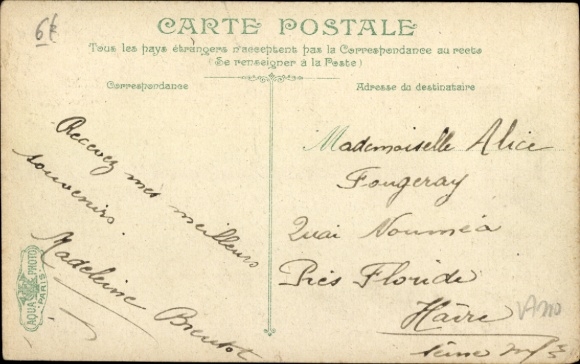 6f
CARTE POSTALE
Tous les pays étrangers n'acceptent pas la Correspondance au recto
(Se renseigner à la Poste)
Correspondance
Adresse du destinataire
Recevez mes meilleurs
souvenirs.
Madeleine
Mademoiselle Alice
Fougeray
Quai Nouméa
Près Floride
Hâvre
Seine
AQUA PHOTO
PARIS